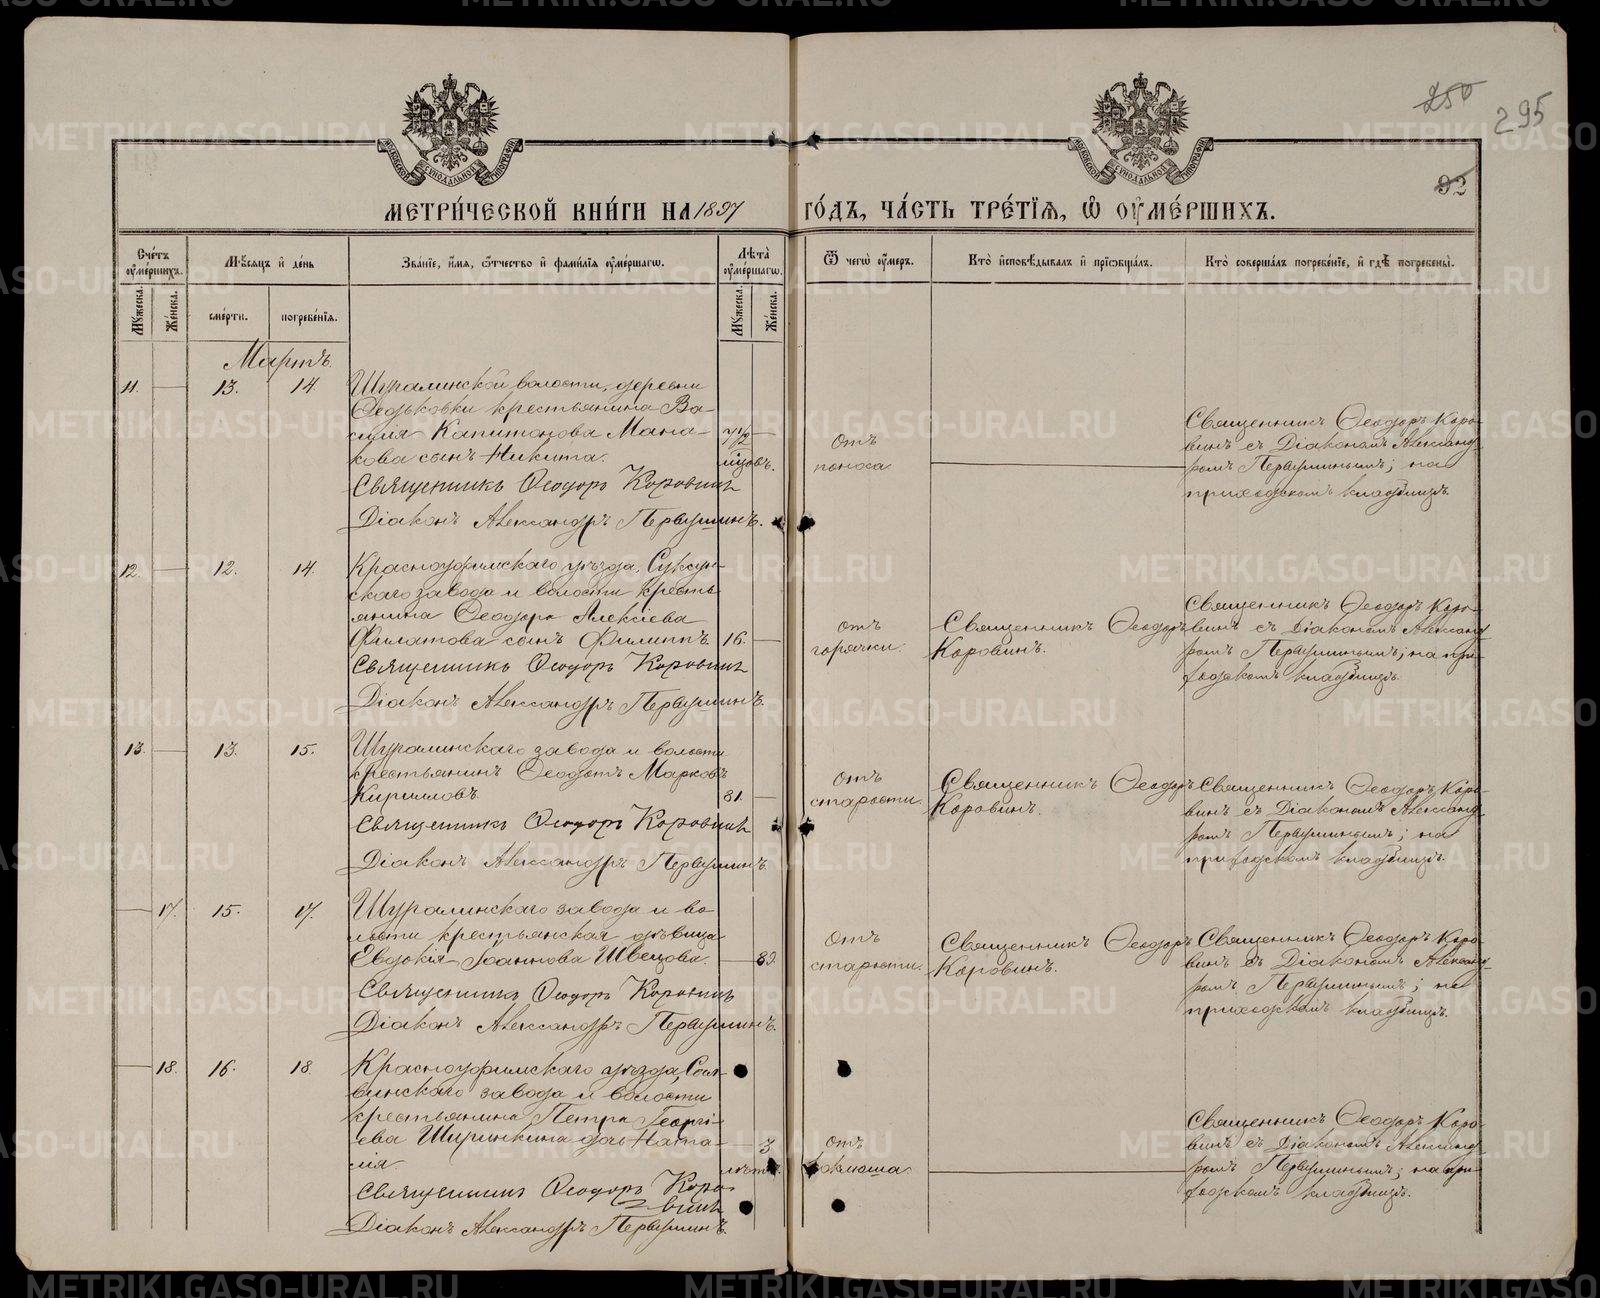 250
295
92
МОСКОВСКОЙ СѴНОДАЛЬНОЙ ТИПОГРАФІИ
МОСКОВСКОЙ СѴНОДАЛЬНОЙ ТИПОГРАФІИ
МЕТРИ́ЧЕСКОЙ КНИ́ГИ НА 1897 ГО́ДЪ, ЧА́СТЬ ТРЕ́ТІЯ, Ѡ ОУМЕ́РШИХЪ.
Сче́тъ оуме́ршихъ.
Мѣ́сяцъ и де́нь
Зва́ніе, и́мя, ѻ҆́тчество и фами́лія оуме́ршагѡ.
Лѣта̀ оуме́ршагѡ.
Ѿ чегѡ̀ оу́меръ.
Кто̀ и҆сповѣ́дывалъ и҆ прїѡбща́лъ.
Кто̀ соверша́лъ погребе́ніе, и҆ гдѣ̀ погребены̀.
Мꙋ́жеска.
Же́нска.
сме́рти.
погребе́нїя.
Мꙋ́жеска.
Же́нска.
Мартъ.
11. 13. 14.
Шуралинской волости, деревни
Ѳедьковки крестьянина Ва-
силія Капитонова Мана-
кова сынъ Никита.
7 1/2
мѣсяцовъ.
Священникъ Ѳеодоръ Коровинъ
Діаконъ Александръ Первушинъ.
Отъ
поноса
Священникъ Ѳеодоръ Коро-
винъ съ Діакономъ Александ-
ромъ Первушинымъ; на
приходскомъ кладбищѣ.
12. 12. 14.
Красноуфимскаго уѣзда, Суксун-
скаго завода и волости кресть-
янина Ѳеодора Алексіева
Филатова сынъ Филиппъ. 16.
Священникъ Ѳеодоръ Коровинъ
Діаконъ Александръ Первушинъ.
отъ
горячки.
Священникъ Ѳеодоръ
Коровинъ.
Священникъ Ѳеодоръ Коро-
винъ съ Діакономъ Александ-
ромъ Первушинымъ; на при-
ходскомъ кладбищѣ.
13. 13. 15.
Шуралинскаго завода и волости
крестьянинъ Ѳеодотъ Марковъ
Кирилловъ. 81.
Священникъ Ѳеодоръ Коровинъ
Діаконъ Александръ Первушинъ.
отъ
старости.
Священникъ Ѳеодоръ
Коровинъ.
Священникъ Ѳеодоръ Коро-
винъ съ Діакономъ Александ-
ромъ Первушинымъ; на
приходскомъ кладбищѣ.
17. 15. 17.
Шуралинскаго завода и во-
лости крестьянская дѣвица
Евдокія Іоаннова Швецова. 89
Священникъ Ѳеодоръ Коровинъ
Діаконъ Александръ Первушинъ.
Отъ
старости.
Священникъ Ѳеодоръ
Коровинъ.
Священникъ Ѳеодоръ Коро-
винъ съ Діакономъ Александ-
ромъ Первушинымъ; на
приходскомъ кладбищѣ.
18. 16. 18.
Красноуфимскаго уѣзда,
винскаго завода и волости
крестьянина Петра Георгі-
ева Ширинкина дочь Ната-
лія.
3
лѣтъ.
Священникъ Ѳеодоръ Коро-
винъ
Діаконъ Александръ Первушинъ.
отъ
коклюша.
Священникъ Ѳеодоръ Коро-
винъ съ Діакономъ Александ-
ромъ Первушинымъ; на при-
ходскомъ кладбищѣ.
METRIKI.GASO-URAL.RU